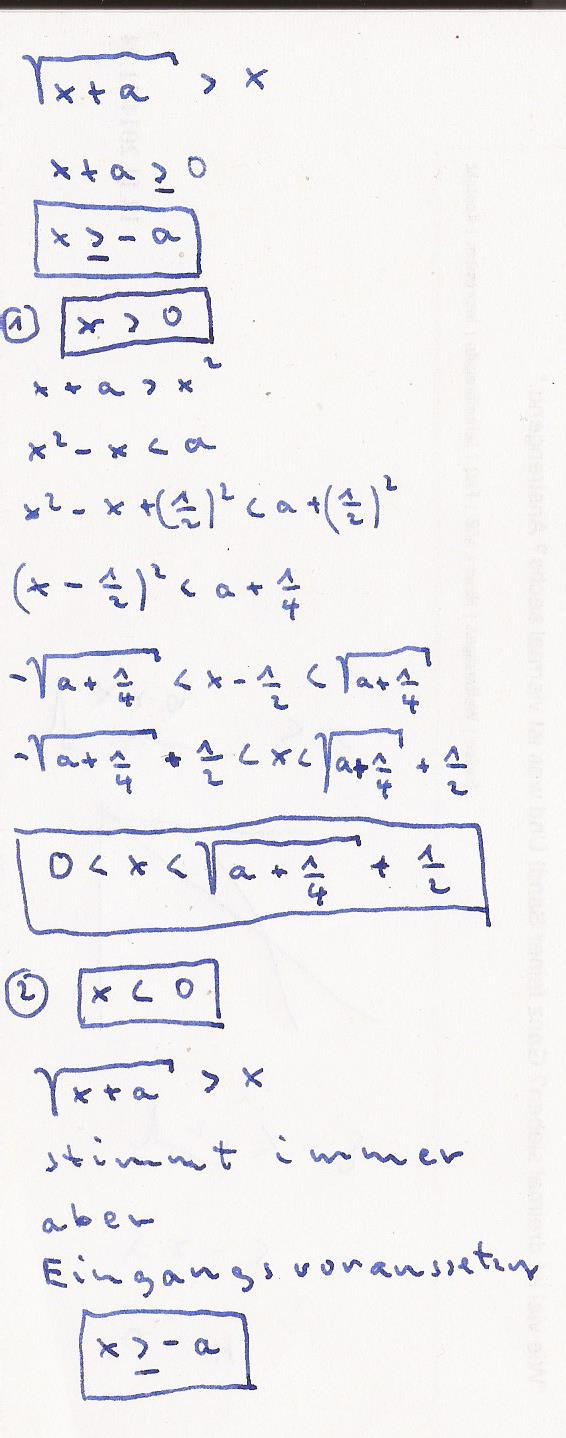 √(x + a) > x
x + a ≥ 0
x ≥ - a
① x > 0
x + a > x²
x² - x < a
x² - x + (1/2)² < a + (1/2)²
(x - 1/2)² < a + 1/4
-√(a + 1/4) < x - 1/2 < √(a + 1/4)
-√(a + 1/4) + 1/2 < x < √(a + 1/4) + 1/2
0 < x < √(a + 1/4) + 1/2
② x < 0
√(x + a) > x
stimmt immer
aber
Eingangsvoraussetzung
x ≥ - a